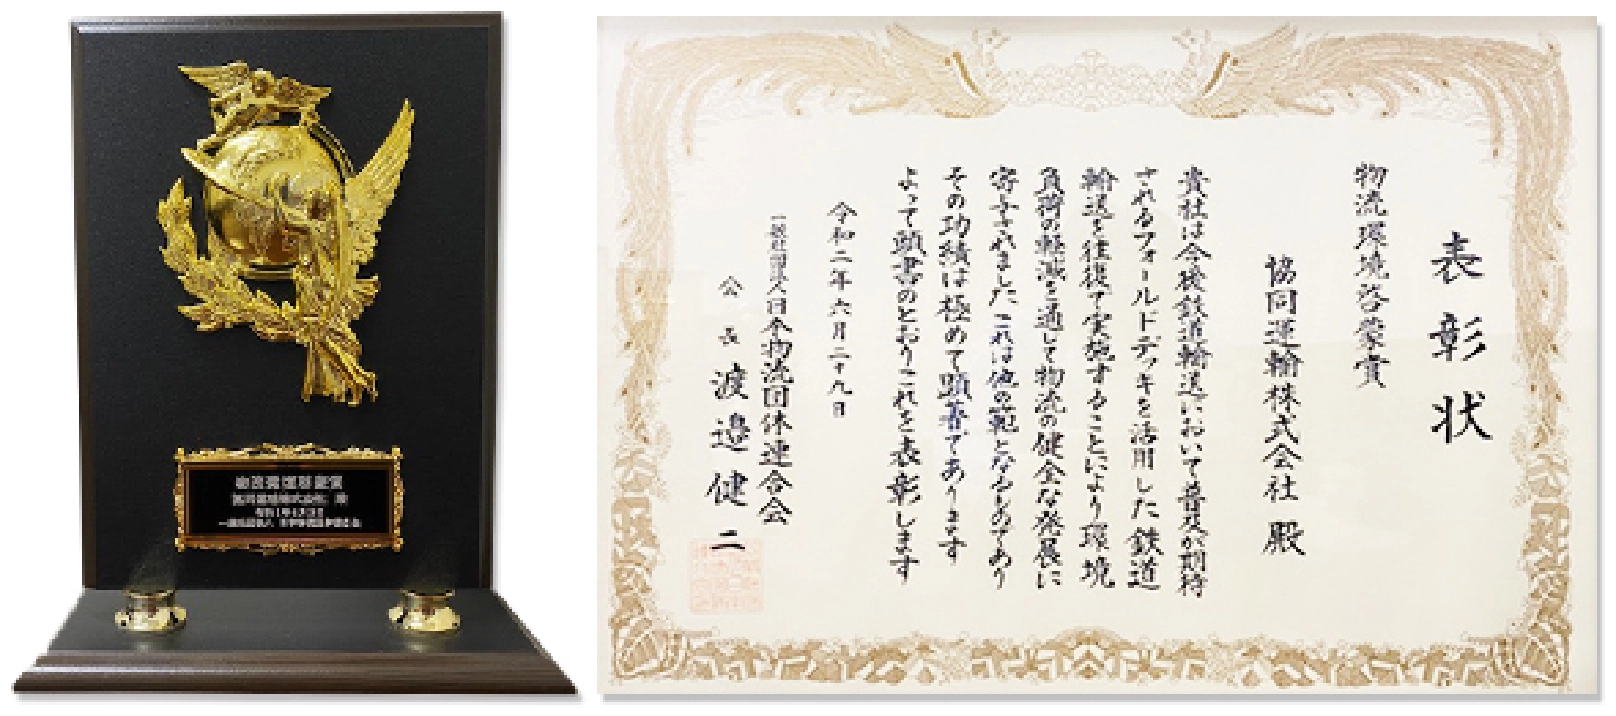 物流環境啓蒙賞
協同運輸株式会社 殿
表彰状
物流環境啓蒙賞
協同運輸株式会社 殿
貴社は今後鉄道輸送において普及が期待
されるフォールドデッキを活用した鉄道
輸送を往復で実施することにより環境
負荷の軽減を通して物流の健全な発展に
寄与されました これは他の範となるものであり
その功績は極めて顕著であります
よって頭書のとおりこれを表彰します
令和二年六月二十九日
一般社団法人日本物流団体連合会
会長 渡邉健二